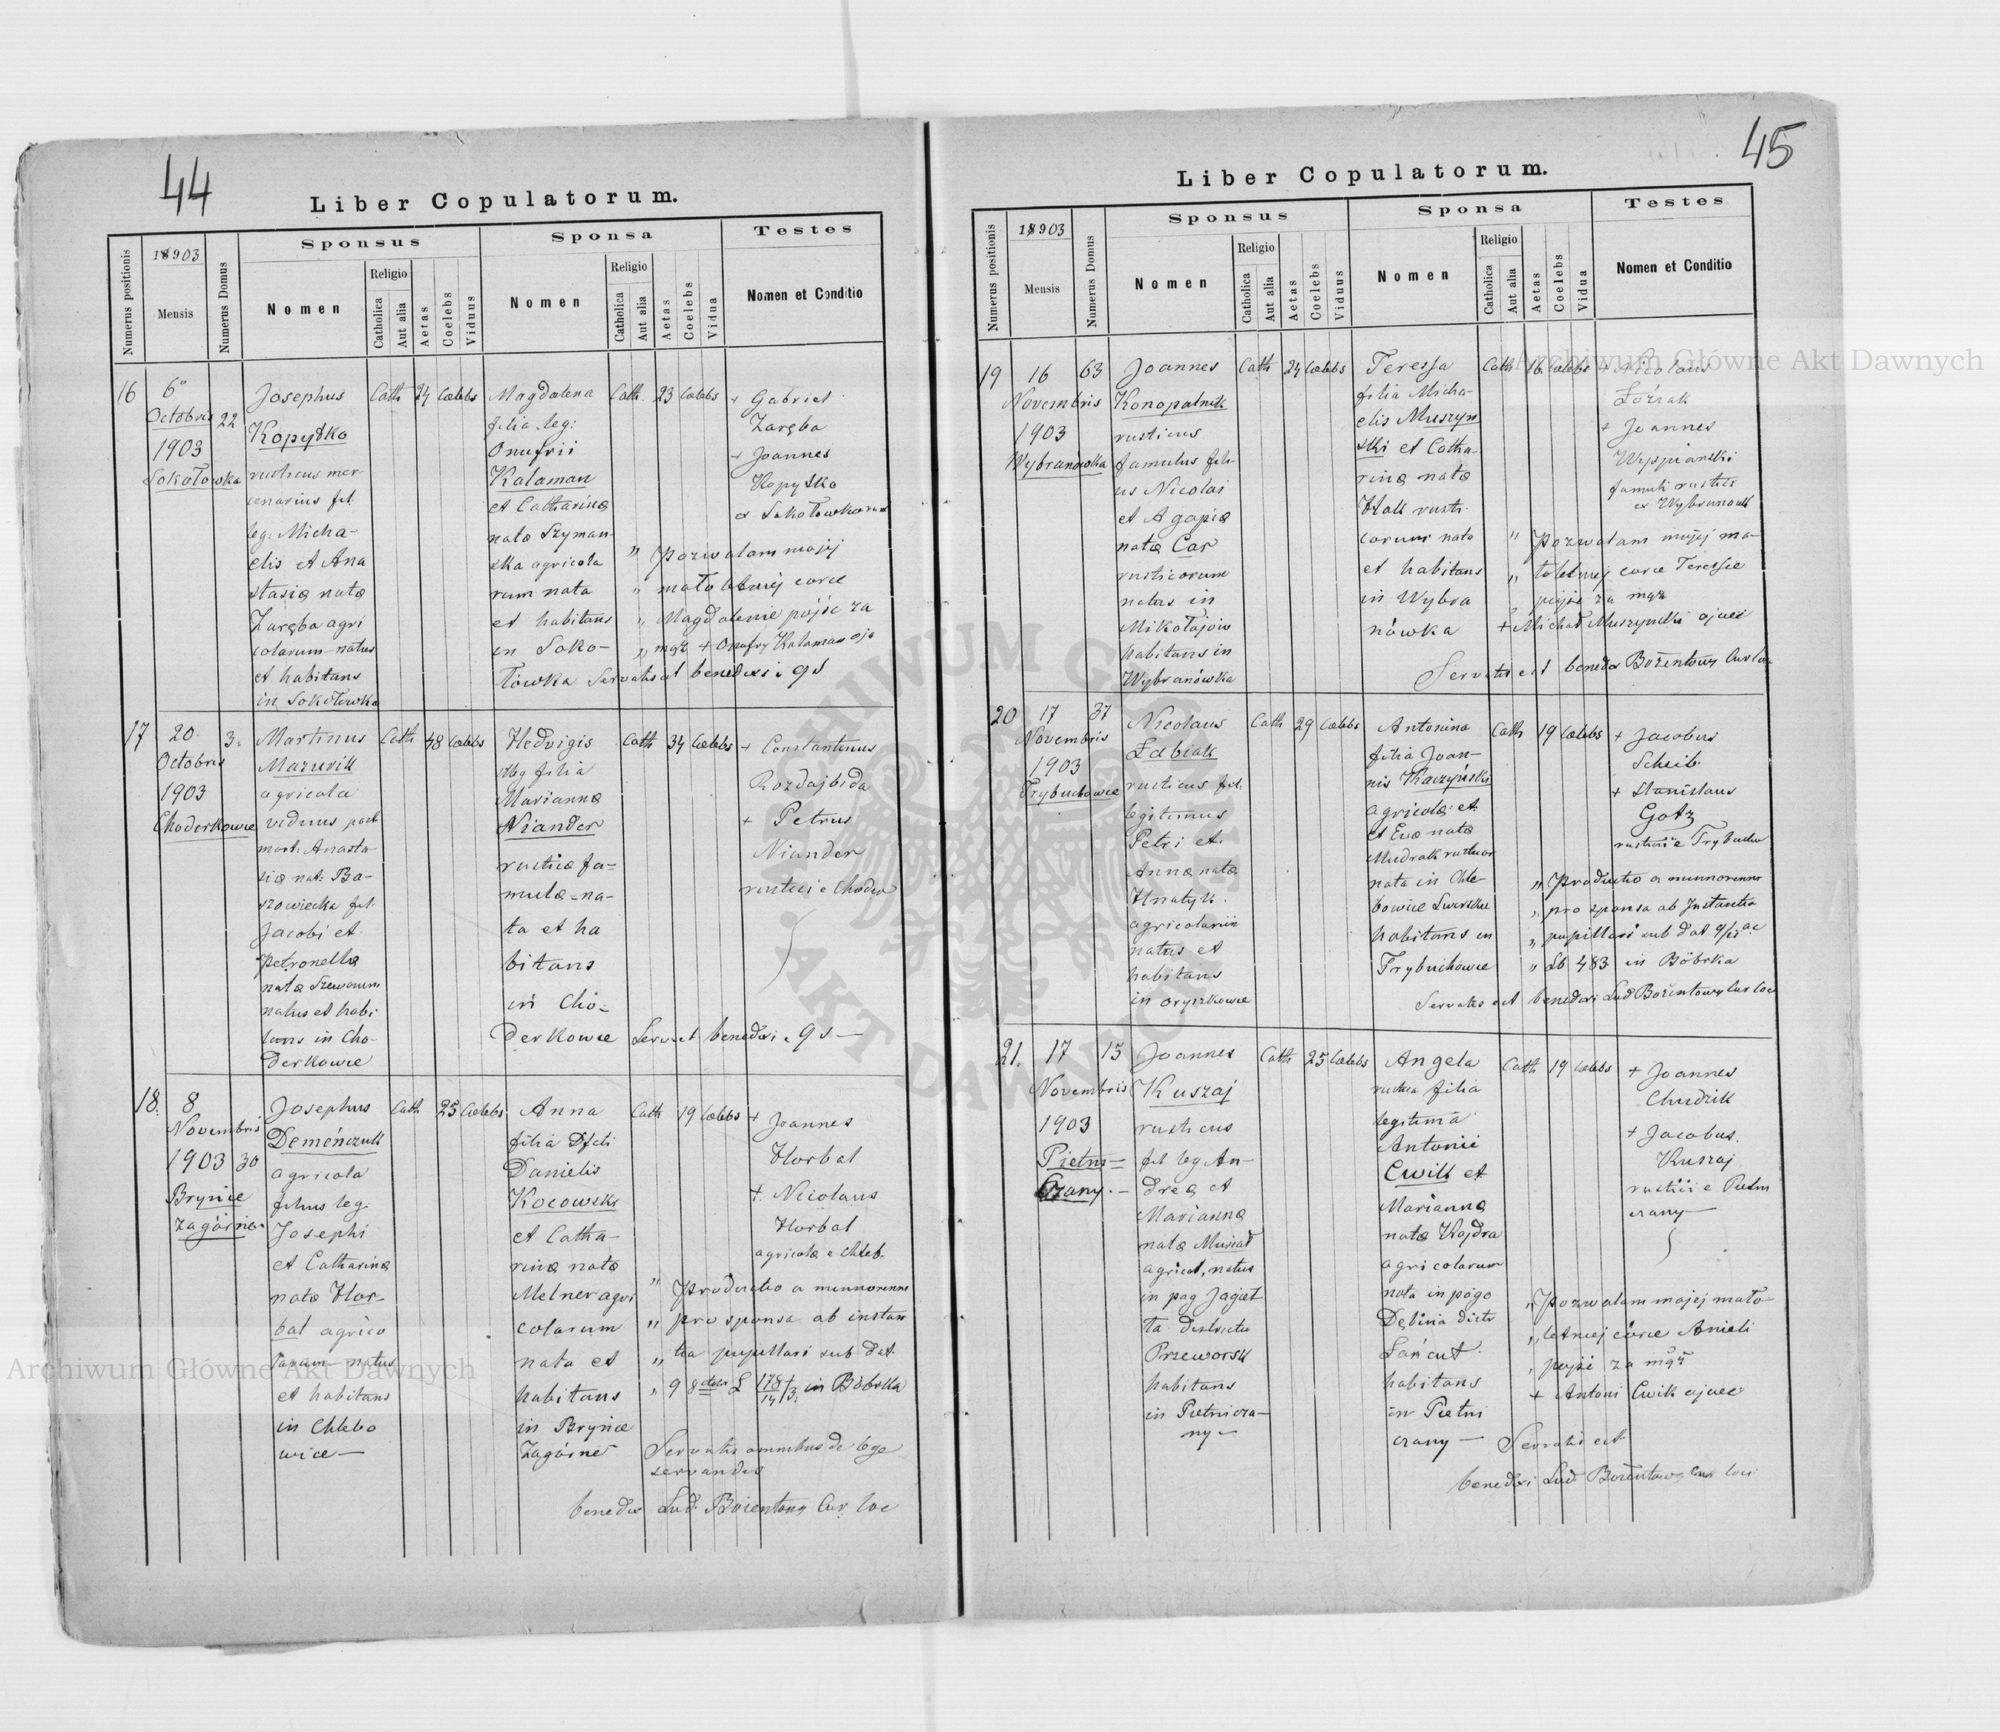 44
Liber Copulatorum.
Numerus positionis
1903
Mensis
Numerus Domus
Sponsus
Nomen
Religio
Catholica
Aut alia
Aetas
Coelebs
Viduus
Sponsa
Nomen
Religio
Catholica
Aut alia
Aetas
Coelebs
Vidua
Testes
Nomen et Conditio
16
6
Octobris
1903
Sokołowka
22
Josephus
Kopytko
rusticus mer-
cenarius fil.
leg: Micha-
elis et Ana
stasię natę
Zaręba agri
colarum natus
et habitans
in Sokołowka
Cath
24
Cœlebs
Magdalena
filia leg:
Onufrii
Kalaman
et Catharinę
natę Szyman-
ska agricola
rum nata
et habitans
in Soko-
łówka
Cath
23
Cœlebs
+ Gabriel
Zaręba
+ Joannes
Kopytko
" Pozwalam mojej
" małoletniej corce
" Magdalenie pójść za
" mąż + Onufry Kalaman
17
20.
Octobris
1903
Choderkowce
3.
Martinus
Mazurik
agricola
viduus post
mort: Anasta-
sią nat: Ba-
szowiecka fil.
Jacobi et
Petronellę
natę
natus et habi
tans in Cho-
derkowce
Cath
48
Cœlebs
Hedvigis
filia
Mariannę
Niander
rustica fa-
mulę na-
ta et ha
bitans
in Cho-
derkowce
Cath
34
Cœlebs
+ Constantinus
Rozdajbida
+ Petrus
Niander
rustici e Choder
18.
8
Novembris
1903
Brynce
Zagórne
30
Josephus
Demeńczuk
agricola
filius leg.
Josephi
et Catharinę
natę Hor-
bal agrico
larum natus
et habitans
in Chlebo
wice
Cath
25
Cœlebs
Anna
filia
Danielis
Kocowski
et Catha-
rinę natę
Melner agri
colarum
nata et
habitans
in Brynce
Zagórne
Cath
19
Cœlebs
+ Joannes
Horbal
+ Nicolaus
Horbal
agricolę e Chleb.
" Producto
" pro sponsa ab instan
" tia pupillari sub dat
in Bóbrka
Servatis omnibus de lege
servandis
Lud. Bożentowy Cur loc
45
Liber Copulatorum.
Numerus positionis
1903
Mensis
Numerus Domus
Sponsus
Nomen
Religio
Catholica
Aut alia
Aetas
Coelebs
Viduus
Sponsa
Nomen
Religio
Catholica
Aut alia
Aetas
Coelebs
Vidua
Testes
Nomen et Conditio
19
16
Novembris
1903
Wybranówka
63
Joannes
Konopalnik
rusticus
famulus fili-
us Nicolai
et Agapię
natę Car
rusticorum
natus in
Mikołajów
habitans in
Wybranówka
Cath
24
Cœlebs
Teressa
filia Micha-
elis Muszyn
ski et Catha-
rinę natę
Hall rusti-
corum nata
et habitans
in Wybra
nówka
Cath
16
Cœlebs
+ Nicolaus
+ Joannes
Wyspianski
famuli rustici
" Pozwalam mojej ma-
" łoletniej corce Teressie
" pójść za mąż
+ Michał Muszynski ojciec
20
17
Novembris
1903
Trybuchowce
37
Nicolaus
Łabiak
rusticus fil.
legitimus
Petri et
Annę natę
Hnatyk
agricolarum
natus et
habitans
in Oryszkowce
Cath
29
Cœlebs
Antonina
filia Joan-
nis Kaczyński
agricolę et
et Evę natę
Mudrak
nata in Chle-
bowice
habitans in
Trybuchowce
Cath
19
Cœlebs
+ Jacobus
Scheib
+ Stanislaus
Gotz
" Producto
" pro sponsa ab Instantia
" pupillari sub dat
483 in Bóbrka
Servatis benedixi Lud Bożentowy Cur loc
21.
17
Novembris
1903
Pietni-
czany
15
Joannes
Kuszaj
rusticus
fil leg An-
dreę et
Mariannę
natę Musiał
agricol. natus
in pag Jagieł
ła districtu
Przeworsk
habitans
in Pietnicza-
ny
Cath
25
Cœlebs
Angela
rustica filia
legitima
Antonii
Cwik et
Mariannę
natę Kojdra
agricolarum
nata in pago
Dębina distr
Łańcut
habitans
in Pietni
czany
Cath
19
Cœlebs
+ Joannes
Chudzik
+ Jacobus
Kuszaj
rustici e Pietni
czany
" Pozwalam mojej mało-
" letniej córce Anieli
" pójść za mąż
+ Antoni Cwik ojciec
benedixi Lud. Bożentowy Cur loci
Archiwum Główne Akt Dawnych
Archiwum Główne Akt Dawnych